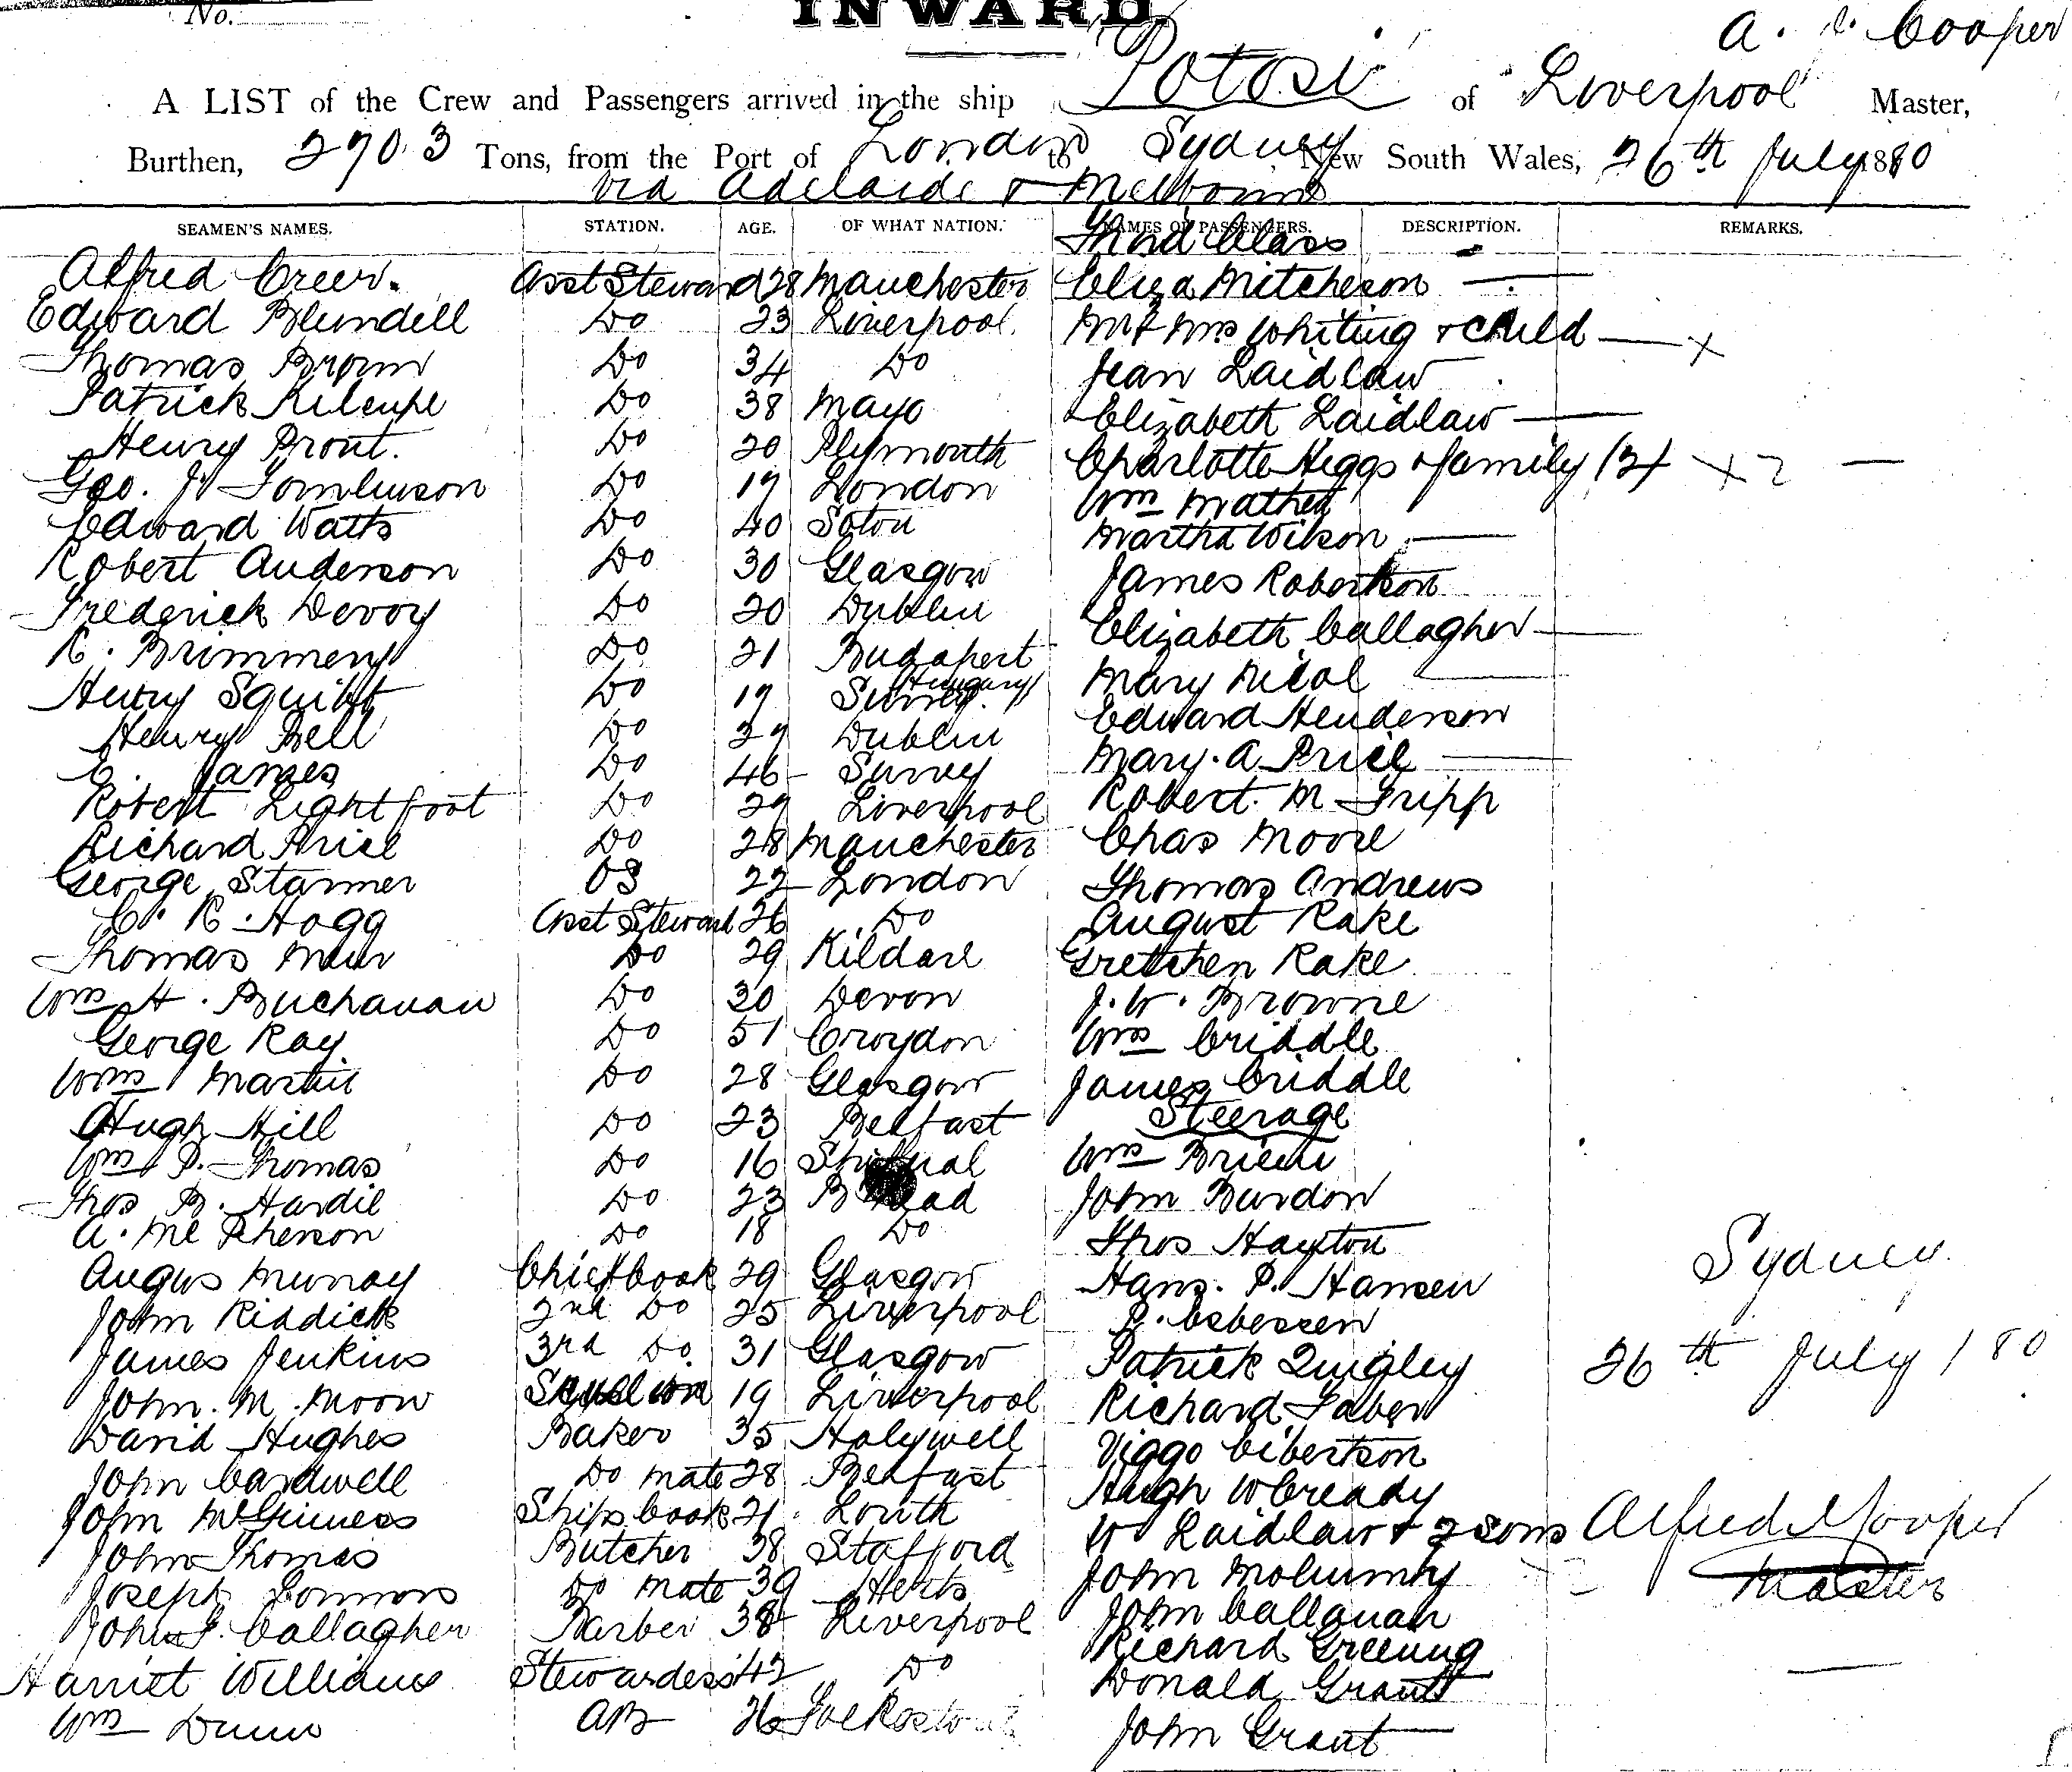 No.
INWARD.
A. Cooper
A LIST of the Crew and Passengers arrived in the ship Potosi of Liverpool Master,
Burthen, 2703 Tons, from the Port of London to Sydney New South Wales, 26th July 1880
via Adelaide & Melbourne
SEAMEN'S NAMES. STATION. AGE. OF WHAT NATION. NAMES OF PASSENGERS. DESCRIPTION. REMARKS.
Third Class
Alfred Creer. Asst Steward 28 Manchester Eliza Mitcheson
Edward Blundell Do 23 Liverpool Mr & Mrs Whiting & Child x
Thomas Brown Do 34 Do Jean Laidlaw
Patrick Do 38 Mayo Elizabeth Laidlaw
Henry Prout. Do 20 Plymouth Charlotte Higgs & family (3) x 2
Geo. J. Tomlinson Do 19 London Wm Mather
Edward Watts Do 40 Soton Martha Wilson
Robert Anderson Do 30 Glasgow James Robertson
Frederick Devoy Do 20 Dublin Elizabeth Callagher
R. Brimmeny Do 21 Budapest Hungary Mary Nicol
Henry Squibb Do 19 Surrey. Edward Henderson
Henry Bell Do 39 Dublin Mary. A. Price
E. James Do 46 Surrey Robert. M Tripp
Robert Lightfoot Do 29 Liverpool Chas Moore
Richard Price Do 28 Manchester Thomas Andrews
George Starmer OS 22 London August Rake
C. R. Hogg Asst Steward 26 Do Gretchen Rake
Thomas Muir Do 29 Kildare J. W. Browne
Wm H. Buchanan Do 30 Devon Wm Criddle
George Ray Do 51 Croydon James Criddle
Wm Martin Do 28 Glasgow Steerage
Hugh Hill Do 23 Belfast Wm
Wm P. Thomas Do 16 John Burdon
Thos B. Hardie Do 23 B head Thos Hayton
A. McPherson Do 18 Do Hans. P. Hansen
Angus Murray Chief Cook 29 Glasgow P. Esbessen
John Riddick 2nd Do 25 Liverpool Patrick Quigley
James Jenkins 3rd Do 31 Glasgow Richard Faber
John. M. Moon Scullion 19 Liverpool Viggo Cibertson
David Hughes Baker 35 Holywell Hugh McCready
John Cardwell Do mate 28 Belfast W Laidlaw & 2 sons
John McGuiness Ships Cook 21 Louth John
John Thomas Butcher 38 Stafford John Callanan
Joseph Do mate 39 Herts Richard Greening
John J. Callagher Barber 38 Liverpool Donald Grant
Harriet Williams Stewardess 42 Do John Grant
Wm Dunn AB 26
Sydney
26th July 180
Alfred Cooper
Master